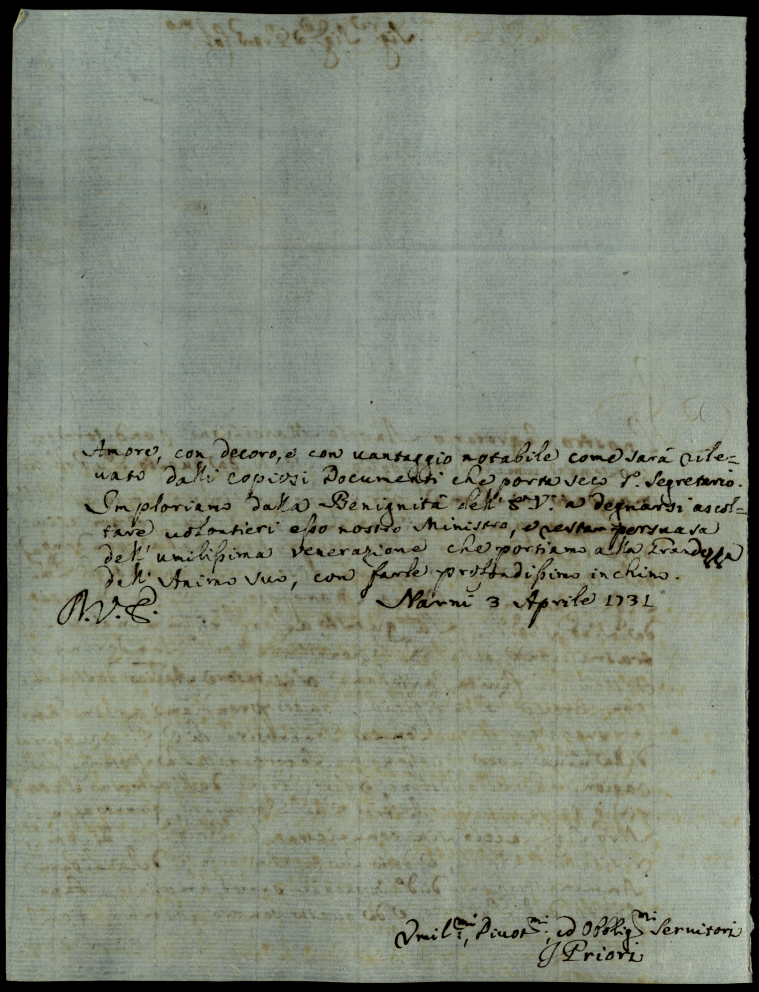 Amore, con decoro, e con vantaggio notabile come sarà rile=
vato dalli copiosi Documenti che porta seco d.º Segretario.
Imploriamo dalla Benignità dell' E. V. a degnarsi ascol=
tare volontieri esso nostro Ministro, e restar persuasa
dell' umilissima venerazione che portiamo alla Grandezza
dell' Animo suo, con farle profondissimo inchino.
Narni 3 Aprile 1731
Umil.mi, Divot.mi, ed Obblig.mi Servitori
I Priori